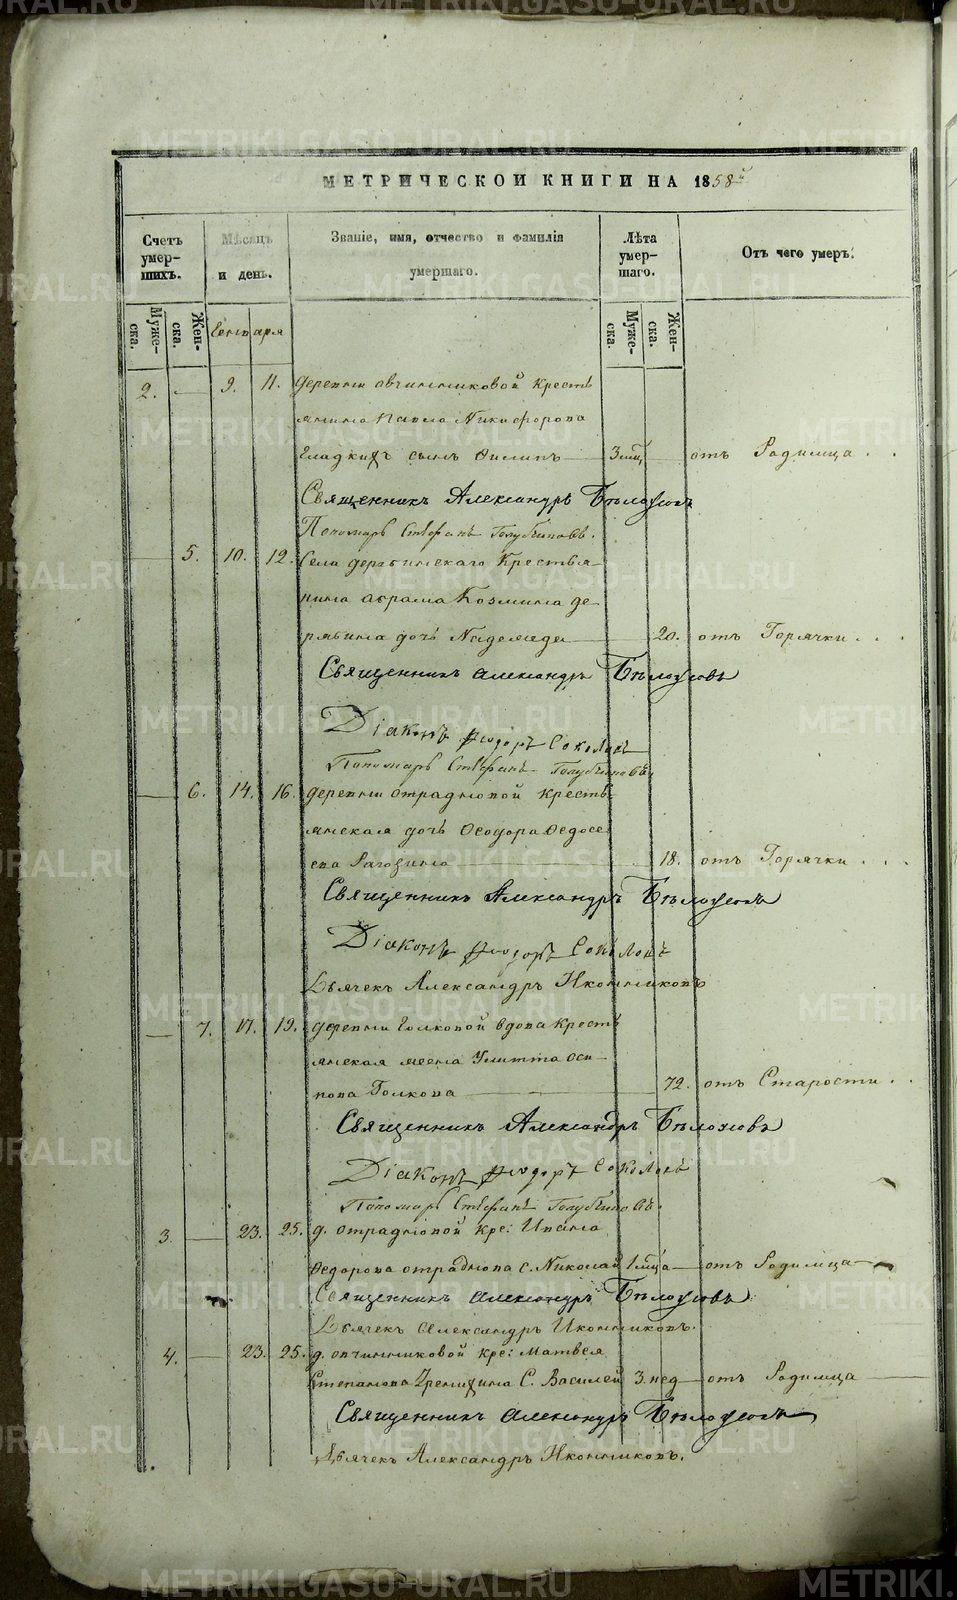 МЕТРИЧЕСКОЙ КНИГИ НА 1858й
Счетъ умер-шихъ.
Мѣсяцъ и день.
Званіе, имя, отчество и фамилія умершаго.
Лѣта умер-шаго.
Отъ чего умеръ.
Муже-ска.
Жен-ска.
Генваря
Муже-ска.
Жен-ска.
2. 9. 11. деревни овчинниковой крестъ
янина Павла Никифорова
Гладкихъ сынъ Филипъ 3 мц отъ Родимца . .
Священникъ Александръ Бѣлоусовъ
Пономарь Стефанъ Голубчиковъ.
5. 10. 12. Села дерябинскаго Крестья
нина аврама Козмина де
рябина дочь Надежда 20. отъ Горячки . . .
Священникъ Александръ Бѣлоусовъ
Діаконъ Ѳеодоръ Соколовъ
Пономарь Стефанъ Голубчиковъ
6. 14. 16. деревни отрадновой кресть
янская дочь Ѳеодора Ѳедосе
ева 18. отъ Горячки . . .
Священникъ Александръ Бѣлоусовъ
Діаконъ Ѳеодоръ Соколовъ
Дьячекъ Александръ Иконниковъ
7. 17. 19. деревни Голковой вдова крестъ
янская жена Улитта оси
пова Голкова 72. отъ Старости . .
Священникъ Александръ Бѣлоусовъ
Діаконъ Ѳеодоръ Соколовъ
Пономарь Стефанъ Голубчиковъ.
3. 23. 25. д. отрадновой кре: Ивана
Ѳедорова отраднова с. Николай 1 мца отъ Родимца
Священникъ Александръ Бѣлоусовъ
Дьячекъ Александръ Иконниковъ.
4. 23. 25. д. овчинниковой кре: Матвея
Степанова С. Василей 3. нед отъ Родимца
Священникъ Александръ Бѣлоусовъ
Дьячекъ Александръ Иконниковъ.
METRIKI.GASO-URAL.RU